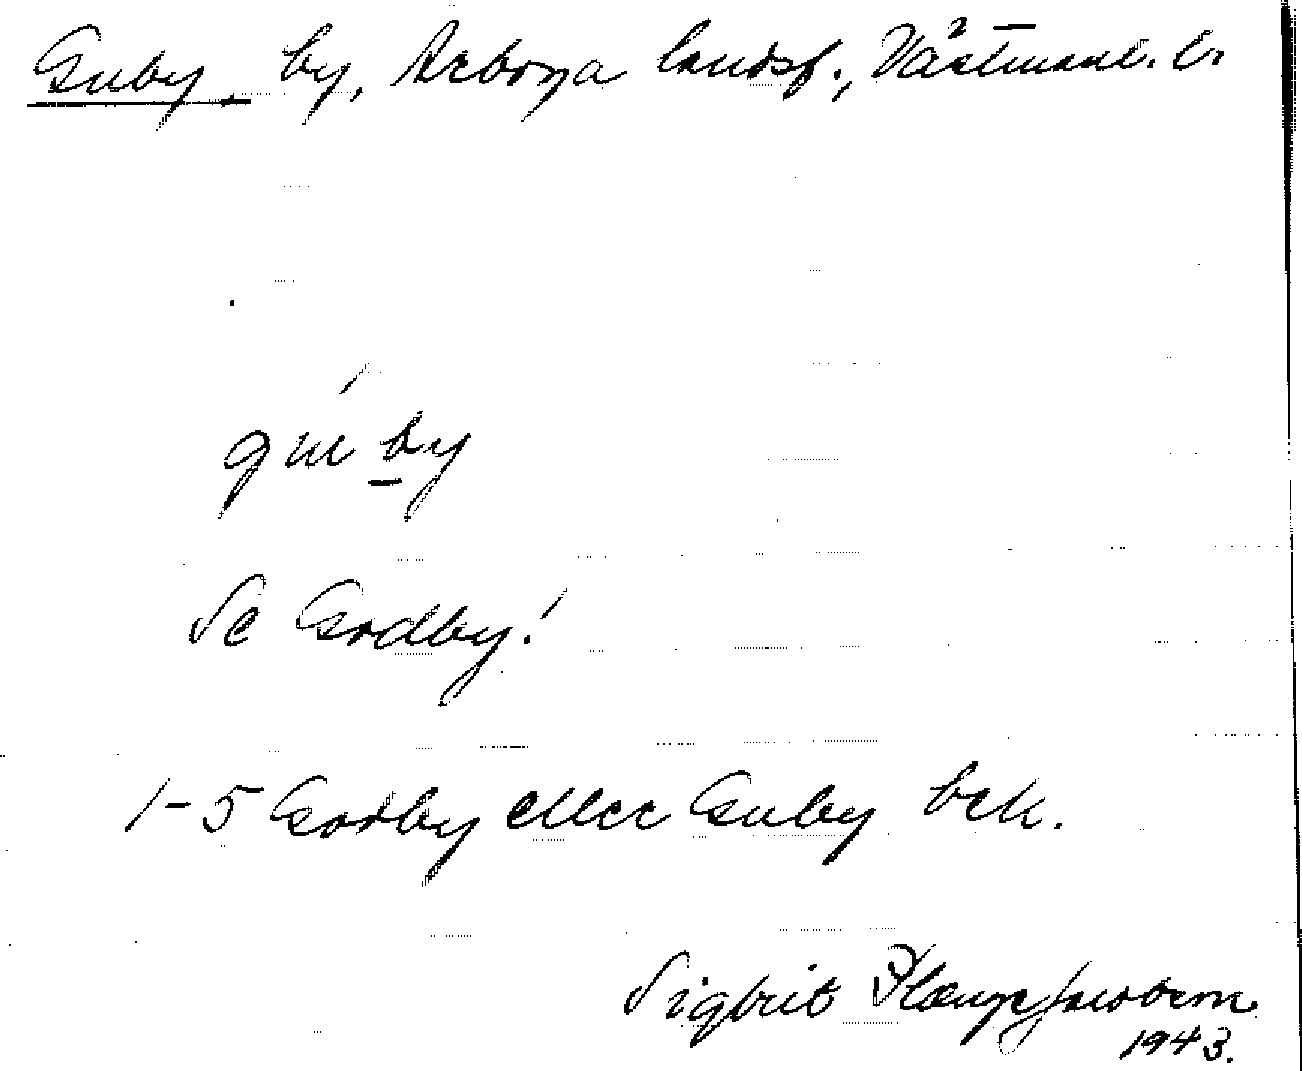 Guby, by, Arboga landsf., Västmanl. l.
gu by
Se Godby!
1-5 Godby eller Guby bek.
Sigbrit Plænge Jacobson
1943.